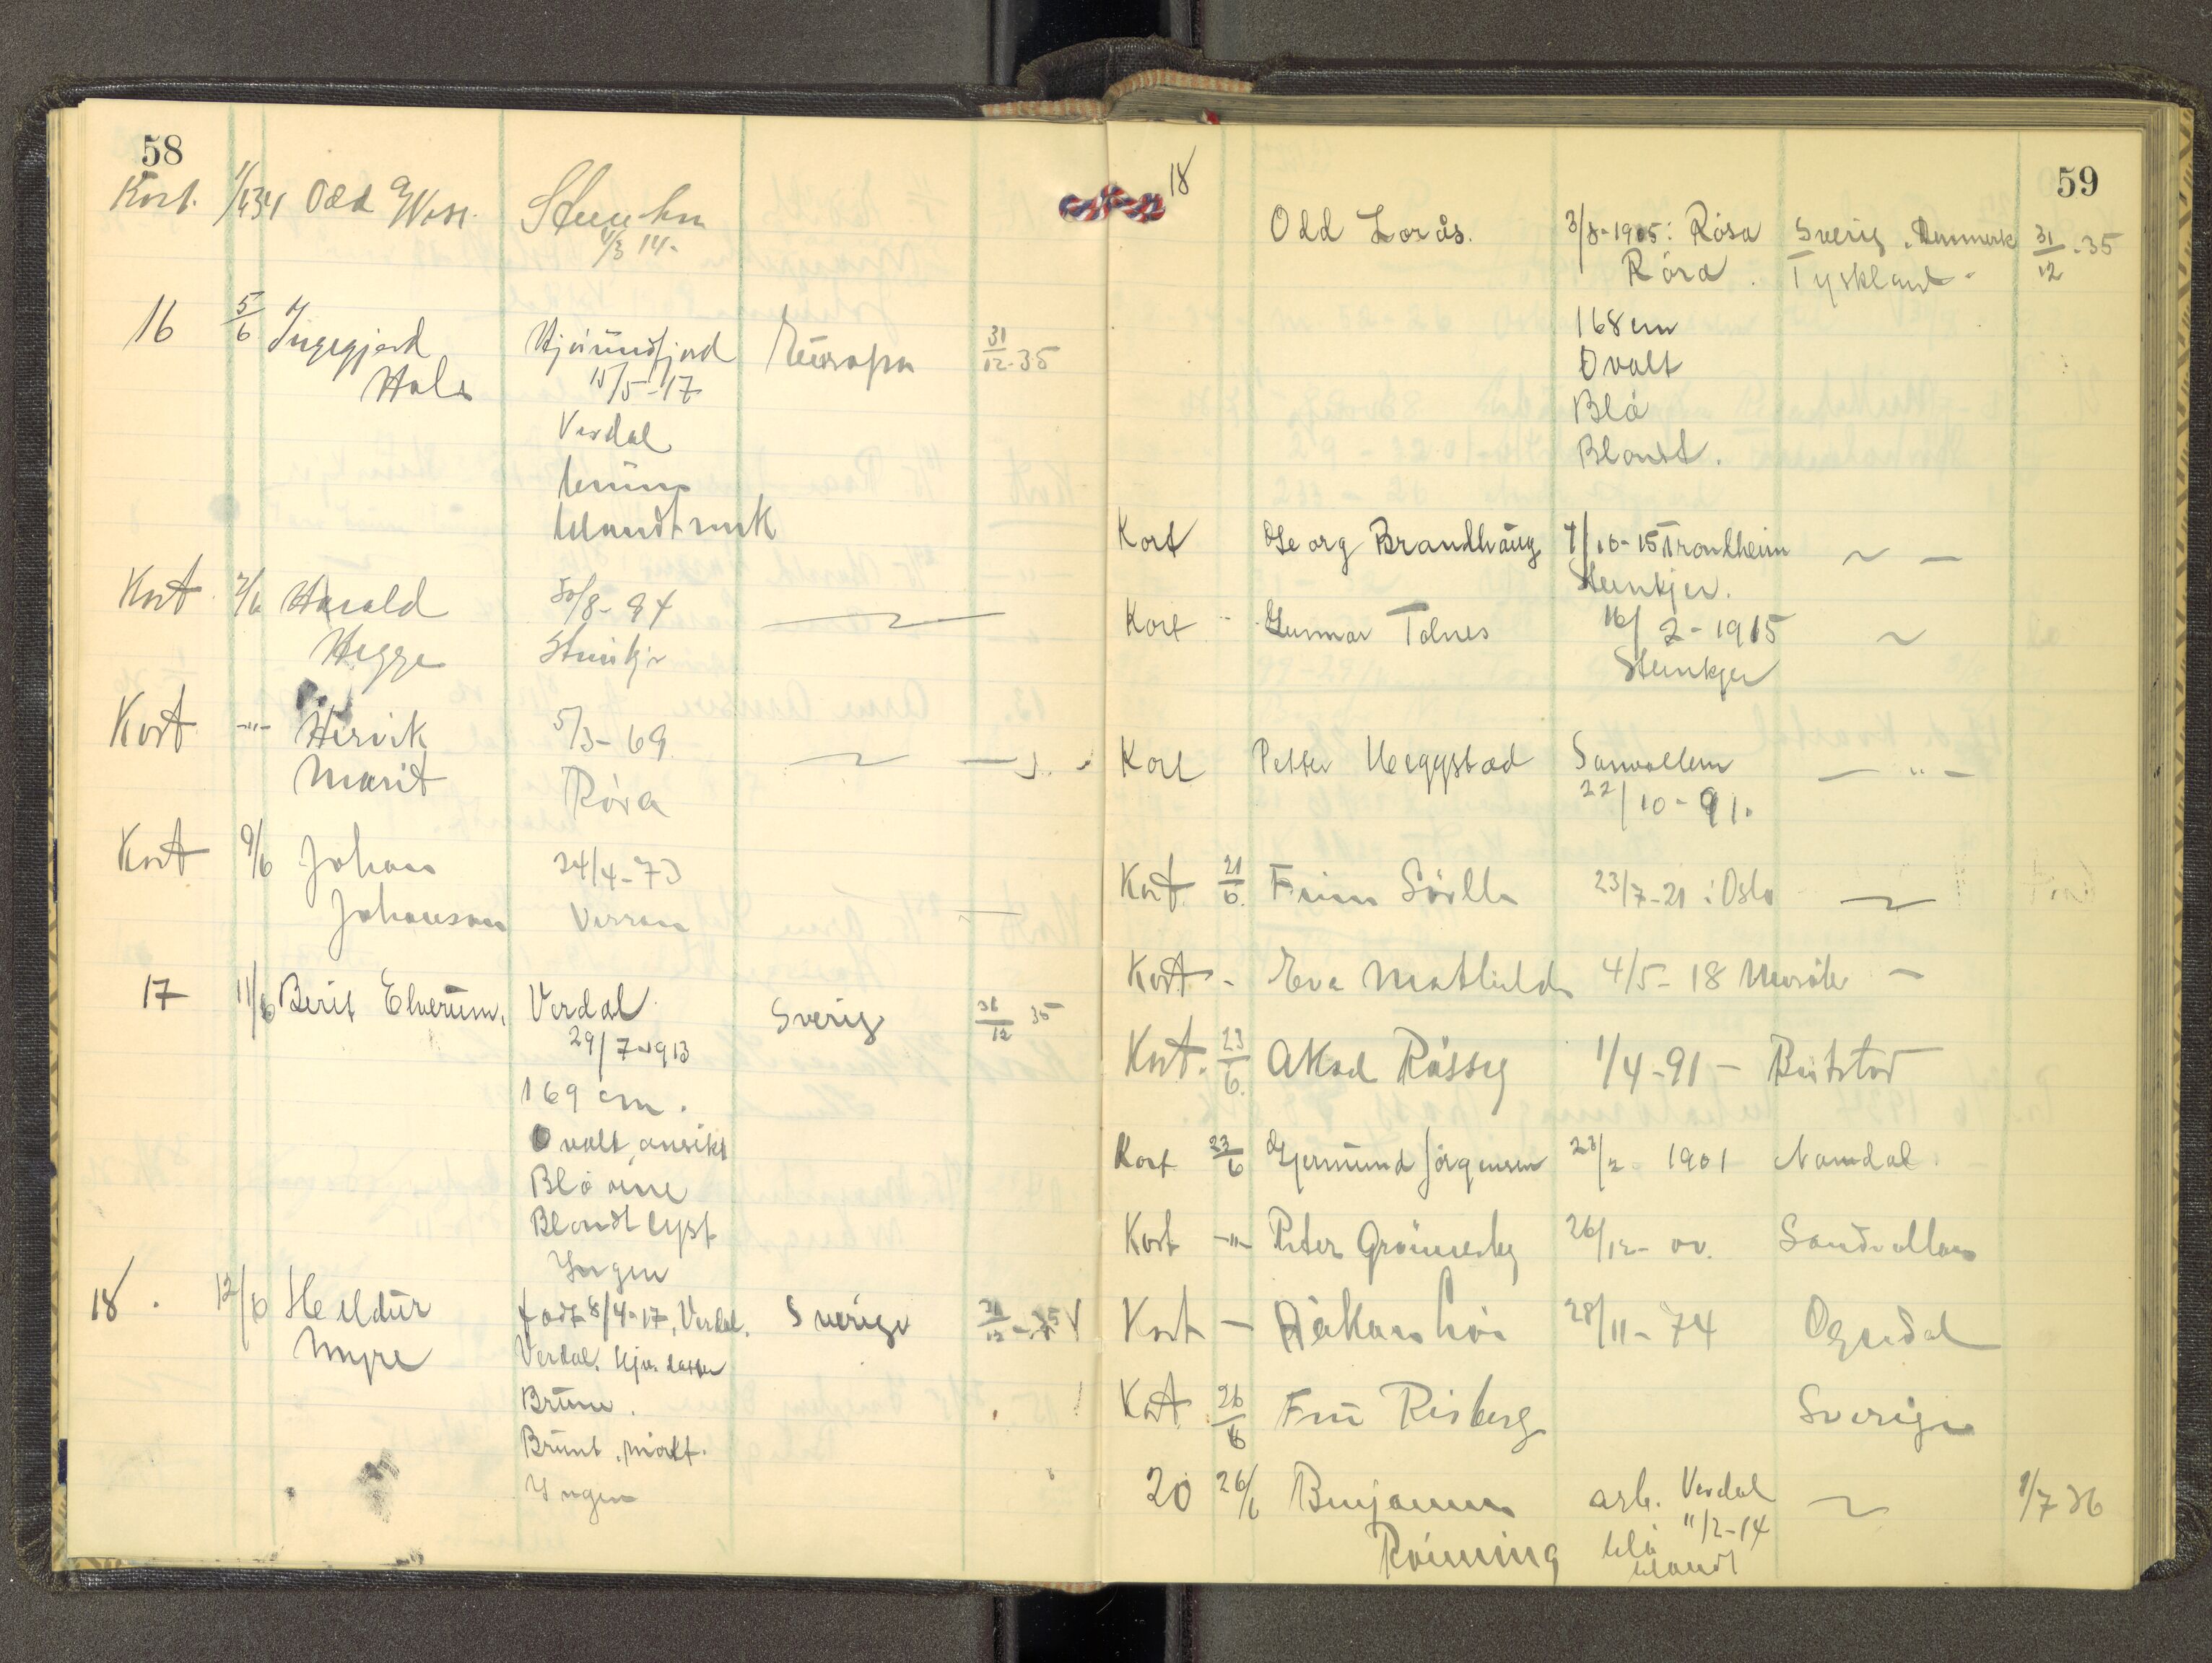 58
Kort. 1/6 34 Odd Steinkjer
1/3 14-
16 5/6 Ingegjerd Hjörundfjord Europa 31/12-35
Hals 15/5-17
Verdal
brune
blondt
Kort 7/6 Harald 30/8-94
Hegge Steinkjer
Kort -"- Hervik 5/3-69
Marit Röra
Kort 9/6 Johan 24/4-73
Johanson Verran
17 11/6 Berit Elverum. Verdal Sverig 31/12 35
29/7-1913
169 cm.
Ovalt ansikt
Blå öine
Blondt lyst
Ingen
18. 12/6 Heldur född 8/4-17, Verdal. Sverige 31/12-35
Myre Verdal.
Brune.
Brunt. mörkt.
Ingen
59
18
Odd Lorås. 3/8-1905: Röra Sverig. Danmark 31/12-35
Röra. Tyskland.
168 cm
Ovalt
Blå
Blondt.
Kort Georg Brandhaug 7/10-15 Trondheim
Steinkjer.
Kort Gunnar Tolnes 16/2-1915
Steinkjer
Kort Petter Heggstad Sanvollan - " -
22/10-91.
Kort 21/6 Finn Sörlle 23/7-21: Oslo
Kort - Eva Mathilde 4/5-18 Meråker -
Kort. 23/6 Aksel Råssey 1/4-91 - Beitstad
Kort 23/6 Gjermund Jörgensen 23/2 1901 Namdal.
Kort -"- Peter Grönnesby 26/12- Sandvollan
Kort - Håkan 28/11-74 Ogndal
Kort 26/6 Fru Risberg Sverige
20 26/6 Benjamin arb. Verdal 1/7 36
Rönning 11/2-14
blå
blondt